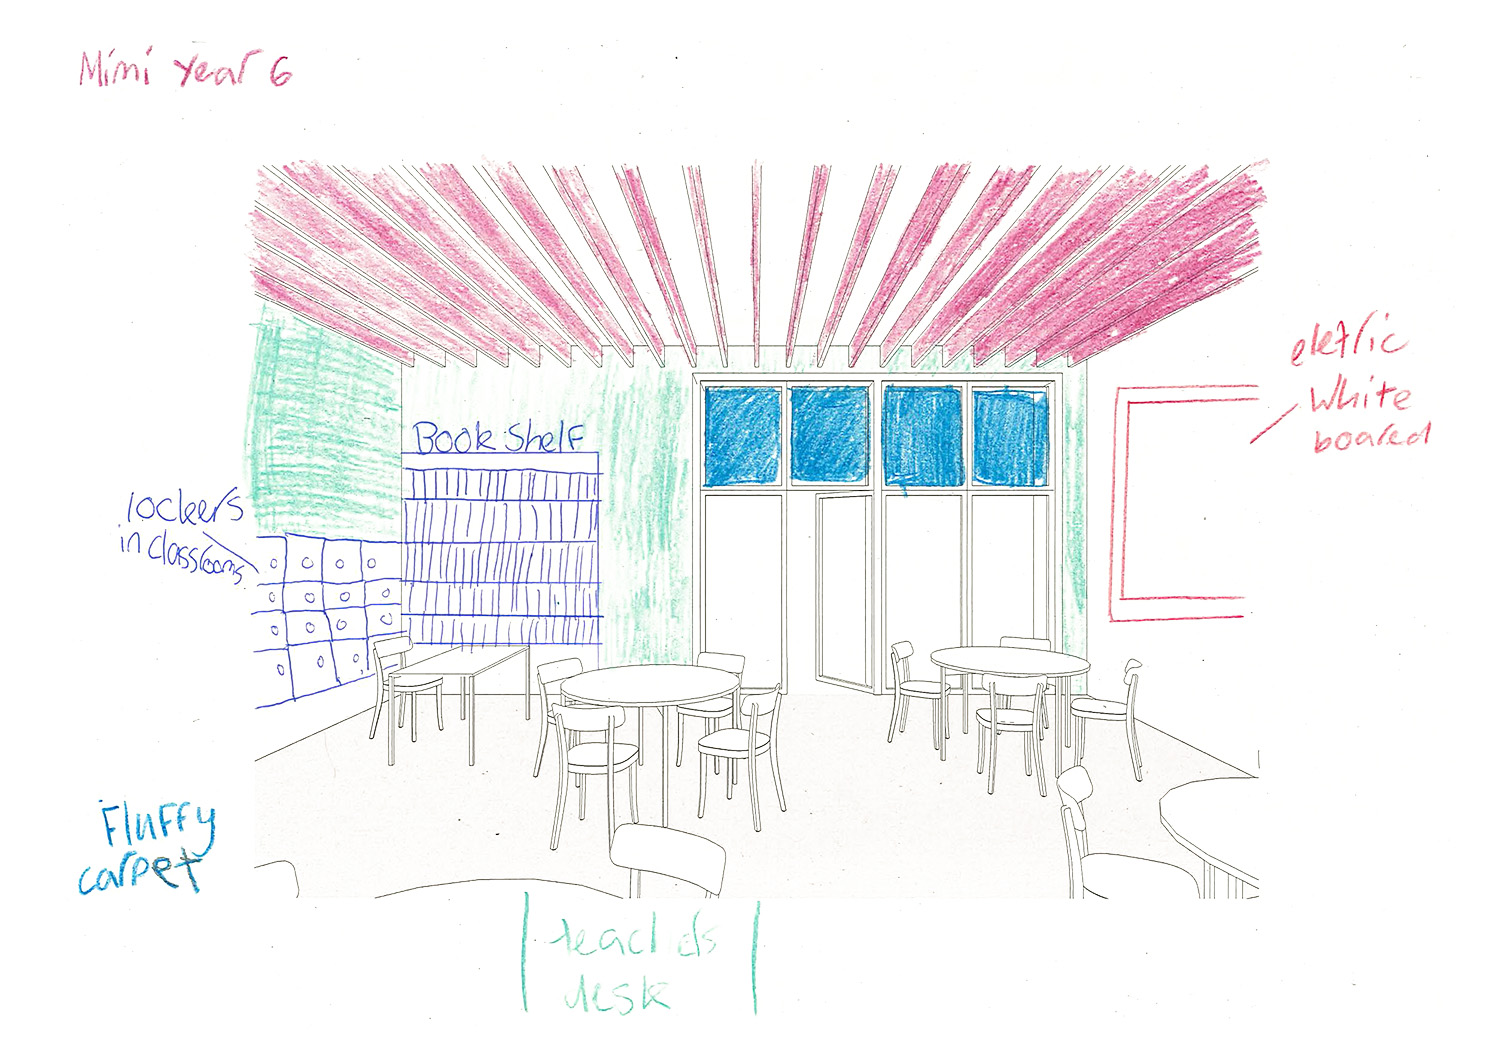 Mimi Year 6
Book Shelf
eletric
White
boared
lockers
in classrooms
Fluffy
carpet
desk